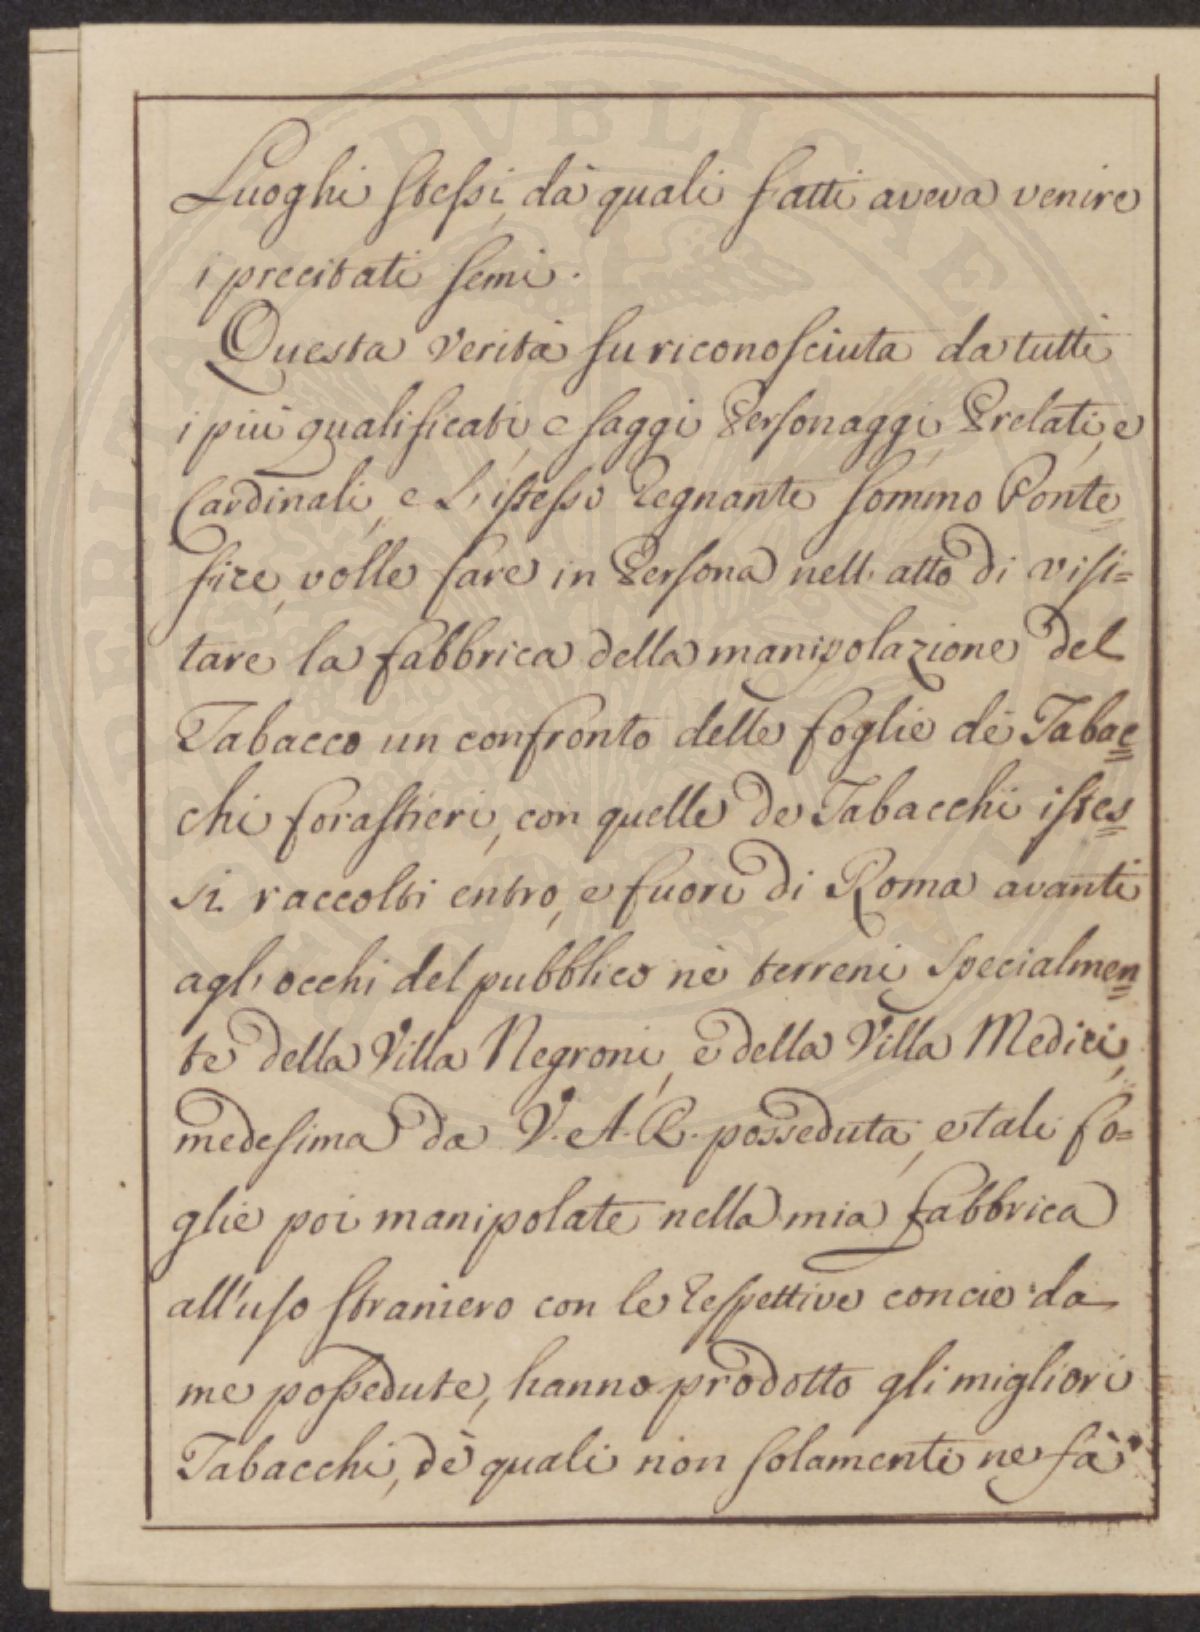 Luoghi stessi, dà quali fatti aveva venire
i precitati semi.
Questa verità fu riconosciuta da tutti
i più qualificati, e saggi Personaggi, Prelati, e
Cardinali, e L'istesso Regnante Sommo Ponte=
fice, volle fare in Persona nell'atto di visi=
tare la fabbrica della manipolazione del
Tabacco un confronto delle foglie dè Tabac=
chi forastieri, con quelle de Tabacchi istes=
si raccolti entro, e fuori di Roma avanti
agl'occhi del pubblico nè terreni specialmen=
te della Villa Negroni, e della Villa Medici,
medesima da V. A. R. posseduta, e tali fo=
glie poi manipolate nella mia fabbrica
all'uso straniero con le respettive concie da
me possedute, hanno prodotto gli migliori
Tabacchi, dè quali non solamente ne fà